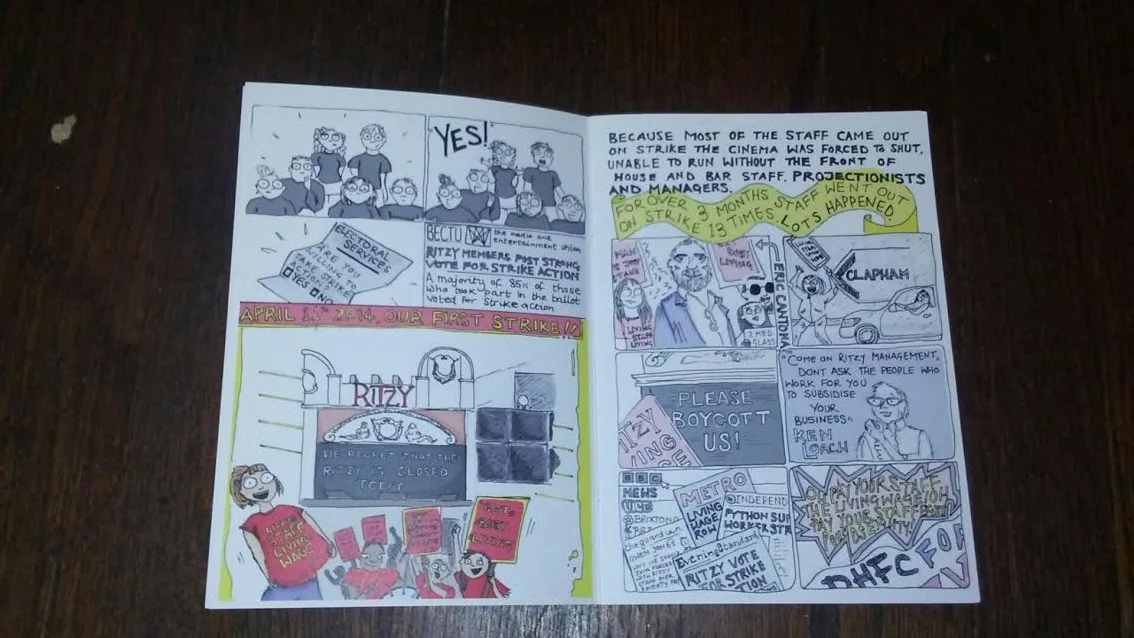 "YES!"
ELECTORAL
SERVICES
ARE YOU
WILLING TO
TAKE STRIKE
ACTION
YES NO
BECTU the media and
entertainment union
RITZY MEMBERS POST STRONG
VOTE FOR STRIKE ACTION
A majority of 85% of those
who took part in the ballot
voted for strike action
APRIL 11th 2014, OUR FIRST STRIKE!!
RITZY
WE REGRET THAT THE
RITZY IS CLOSED
TODAY
LIVING
STAFF
LIVING
WAGE
BECAUSE MOST OF THE STAFF CAME OUT
ON STRIKE THE CINEMA WAS FORCED TO SHUT,
UNABLE TO RUN WITHOUT THE FRONT OF
HOUSE AND BAR STAFF, PROJECTIONISTS
AND MANAGERS.
FOR OVER 3 MONTHS STAFF WENT OUT
ON STRIKE 13 TIMES, LOTS HAPPENED.
LIVING
STAFF
LIVING
LIVING
ERIC CANTONA
CLAPHAM
PLEASE
BOYCOTT
US!
"COME ON RITZY MANAGEMENT,
DONT ASK THE PEOPLE WHO
WORK FOR YOU
TO SUBSIDISE
YOUR
BUSINESS"
KEN
LOACH
BBC
NEWS
VICE
METRO
LIVING
WAGE
ROW
INDEPEND
PYTHON SUP
WORKER STR
Evening Standard
RITZY VOTE
FOR STRIKE
TION
OH PAY YOUR STAFF
THE LIVING WAGE, OH
PAY YOUR STAFF
DHFC FOR